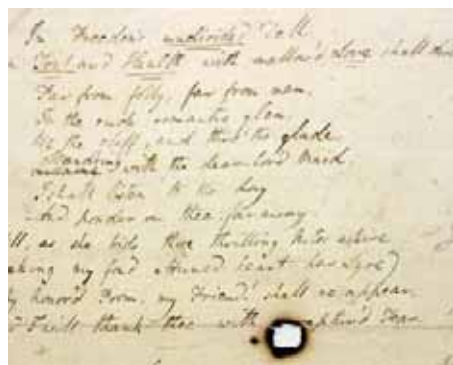 In Freedom's undivided Dell
Toil and Health with mellow'd Love shall
Far from folly, far from men,
In the rude romantic glen,
Up the cliff, and thro' the glade,
Wand'ring with the dear-lov'd Maid,
I shall listen to the lay
And ponder on thee far away
as she bids those thrilling Notes aspire
my fond Attuned heart her Lyre)
honor'd Form, my Friend! shall re-appear
I will thank thee with Tear.